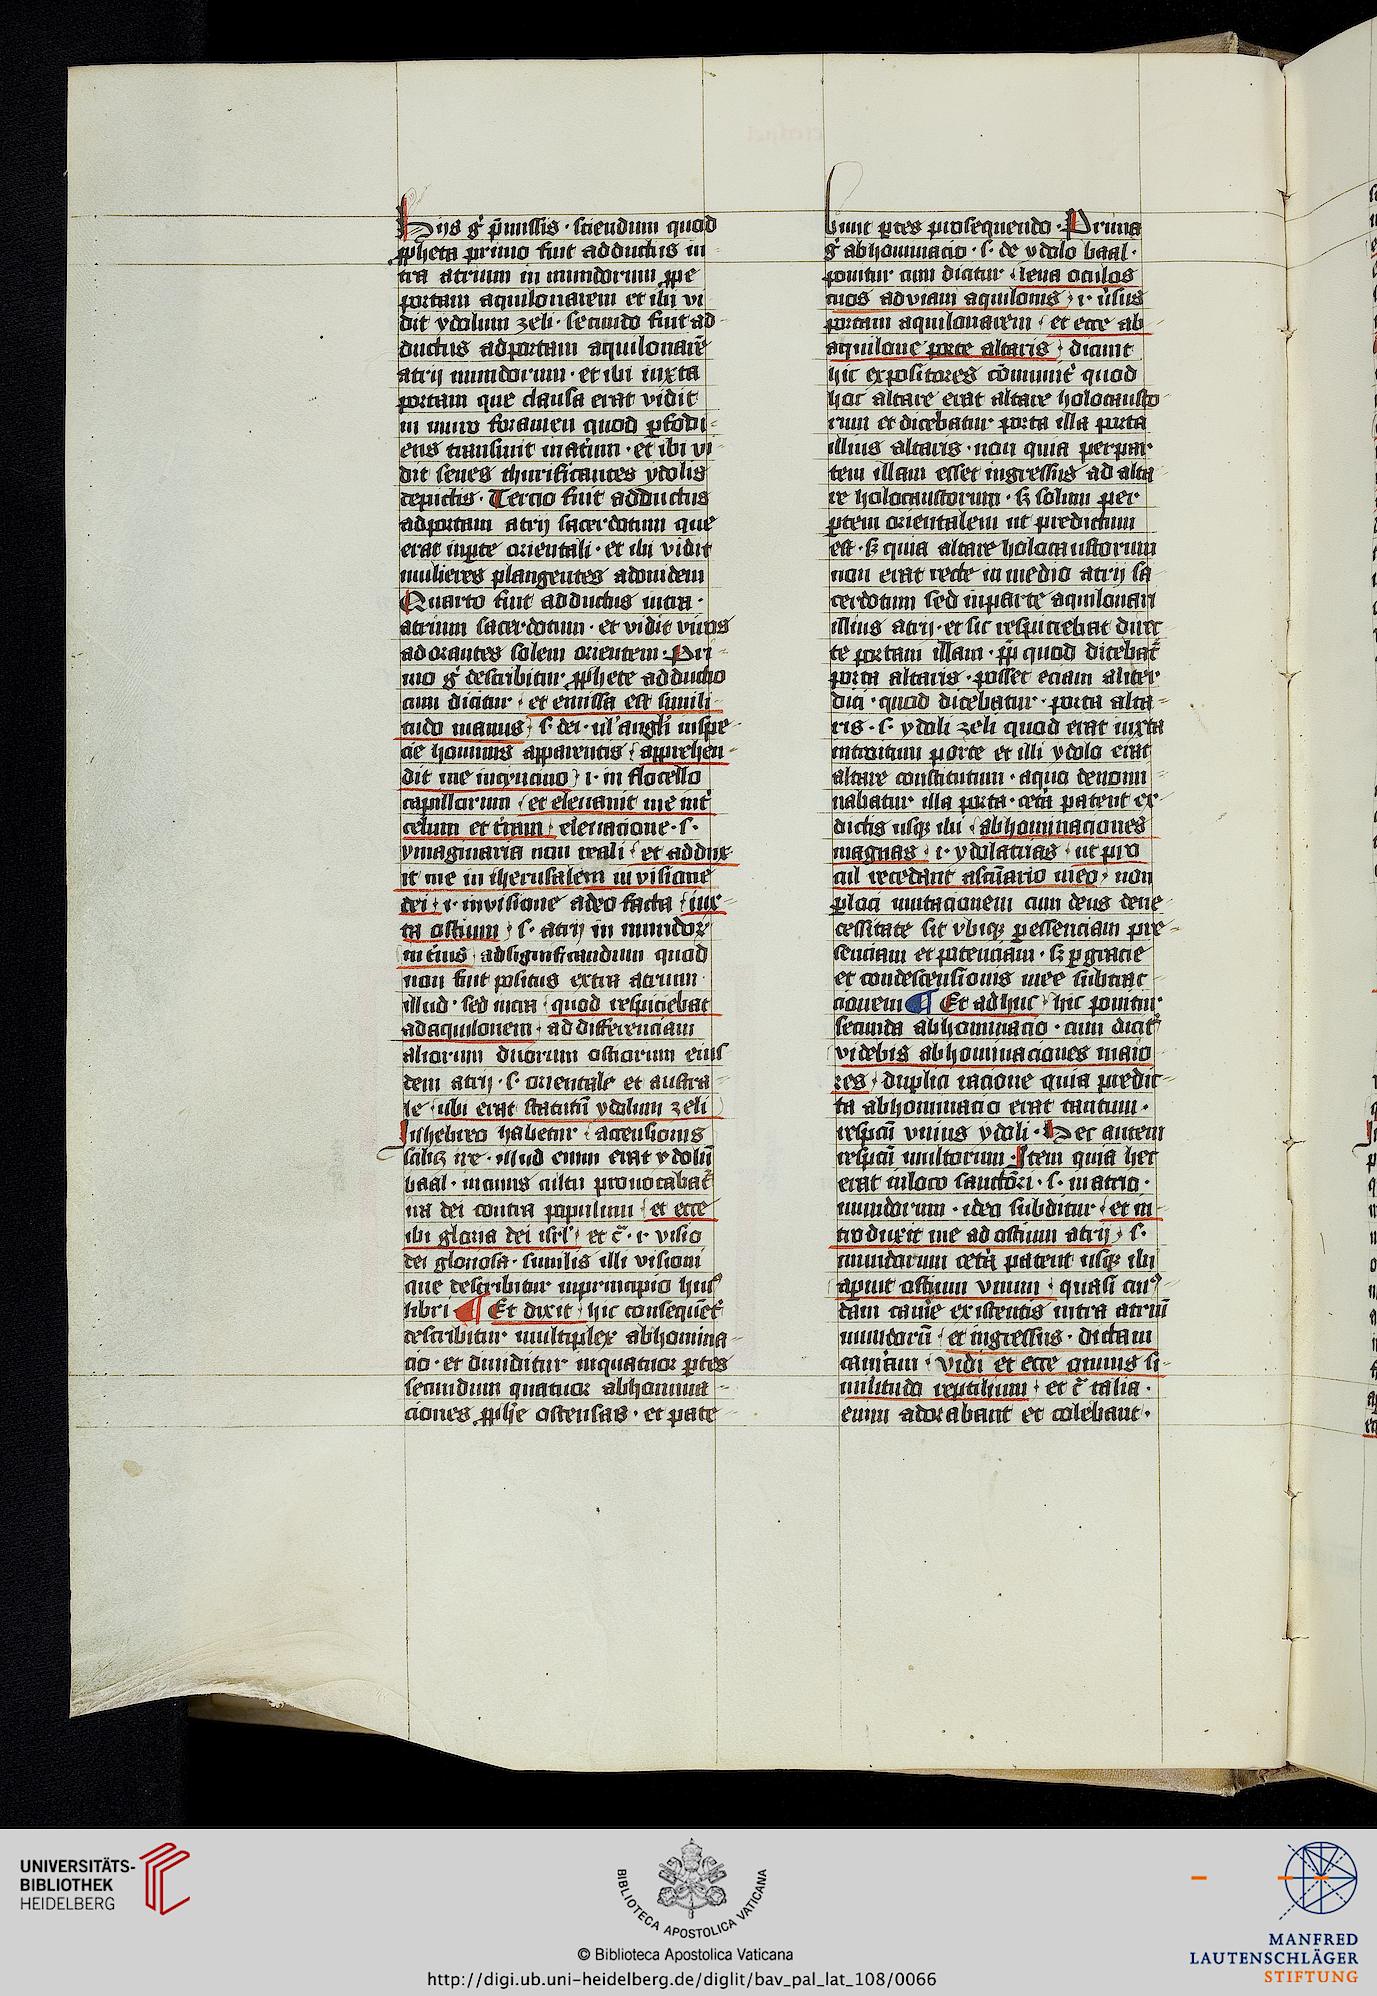 Hijs g̾ p̄missis · sciendum quod
ꝓpheta primo fuit adductus in
tra atrium in mundorum ꝓpe
portam aquilonarem et ibi vi
dit ydolum zeli · secundo fuit ad
ductus ad portam aquilonarē
atrij mundorum · et ibi iuxta
portam que clausa erat vidit
in muro foramen quod ꝑfodi
ens transiuit in at̾um · et ibi vi
dit senes thurificantes ydolis
depictis · Tercio fuit adductus
ad portam atrij sacerdotum que
erat in ꝑte orientali · et ibi vidit
mulieres plangentes adonidem
Quarto fuit adductus intra ·
atrium sacerdotum · et vidit viros
adorantes solem orientem · Pri
mo g̾ describitur ꝓphete adductio
cum dicitur · et emissa est simili
tudo manus · s · dei · ul' angl̾i in spe
cie hominis apparentis · apprehen
dit me in cincino · i · in flocello
capillorum · et eleuauit me int̾
celum et t̾ram · eleuacione · s ·
ymaginaria non reali · et addux
it me in iherusalem in visione
dei · i · in visione a deo facta · iux
ta ostium · s · atrij in mundor̾
int̾ius · ad significandum quod
non fuit positus extra atrium
illud · sed intra · quod respiciebat
ad aquilonem · ad differenciam
aliorum duorum ostiorum eius
dem atrij · s · orientale et austra
le · ubi erat statutū ydolum zeli
In hebreo habetur · accensionis
siue ire · illud enim erat ydolū
baal · in cuius cultu prouocabat̾
ira dei contra populum · et ecce
ibi gloria dei isrl' · et c̄ · i · visio
dei gloriosa · similis illi visioni
que describitur in principio hui᷒
libri ¶ Et dixit · hic consequēt̾
describitur multiplex abhomina
cio · et diuiditur in quatuor ꝑtes
secundum quatuor abhomina
ciones ꝓph̾e ostensas · et pate
bunt ꝑtes prosequendo · Prima
g̾ abhominacio · s · de ydolo baal ·
ponitur cum dicitur · leua oculos
tuos ad viam aquilonis · i · ūsus
portam aquilonarem · et ecce ab
aquilone porte altaris · dicunt
hic expositores cōmunit̾ quod
hoc altare erat altare holocausto
rum et dicebatur porta illa porta
illius altaris · non quia per par
tem illam esset ingressus ad alta
re holocaustorum · sꝫ solum per
ꝑtem orientalem ut predictum
est · sꝫ quia altare holocaustorum
non erat recte in medio atrij sa
cerdotum sed in parte aquilonari
illius atrij · et sic respiciebat direc
te portam illam · ꝓp̾ quod dicebat̾
porta altaris · posset eciam aliter
dici · quod dicebatur · porta alta
ris · s · ydoli zeli quod erat iuxta
introitum porte et illi ydolo erat
altare constitutum · a quo denomi
nabatur illa porta · cet̾a patent ex
dictis usqꝫ ibi · abhominaciones
magnas · i · ydolatrias · ut pro
cul recedant a sc̄uario meo · non
ꝑ loci mutacionem cum deus de ne
cessitate sit vbiqꝫ ꝑ essenciam pre
senciam et potenciam · sꝫ ꝑ gracie
et condescensionis mee subtrac
cionem ¶ Et adhuc · hic ponitur
secunda abhominacio · cum dicit̾
videbis abhominaciones maio
res · duplici racione quia predic
ta abhominacio erat tantum ·
respc̄u vnius ydoli · Hec autem
respc̄u multorum · Item quia hec
erat in loco sanctōri · s · in atrio ·
mundorum · ideo subditur · et in
troduxit me ad ostium atrij · s ·
mundorum cet̾a patent usqꝫ ibi
aperuit ostium vnum · quasi cui᷒
dam cam̾e existentis intra atriū
mundorū · et ingressus · dictam
cam̾am · vidi et ecce omnis si
militudo reptilium · et c̄ talia ·
enim adorabant et colebant ·
UNIVERSITÄTS-
BIBLIOTHEK
HEIDELBERG
BIBLIOTECA APOSTOLICA VATICANA
© Biblioteca Apostolica Vaticana
http://digi.ub.uni-heidelberg.de/diglit/bav_pal_lat_108/0066
MANFRED
LAUTENSCHLÄGER
STIFTUNG